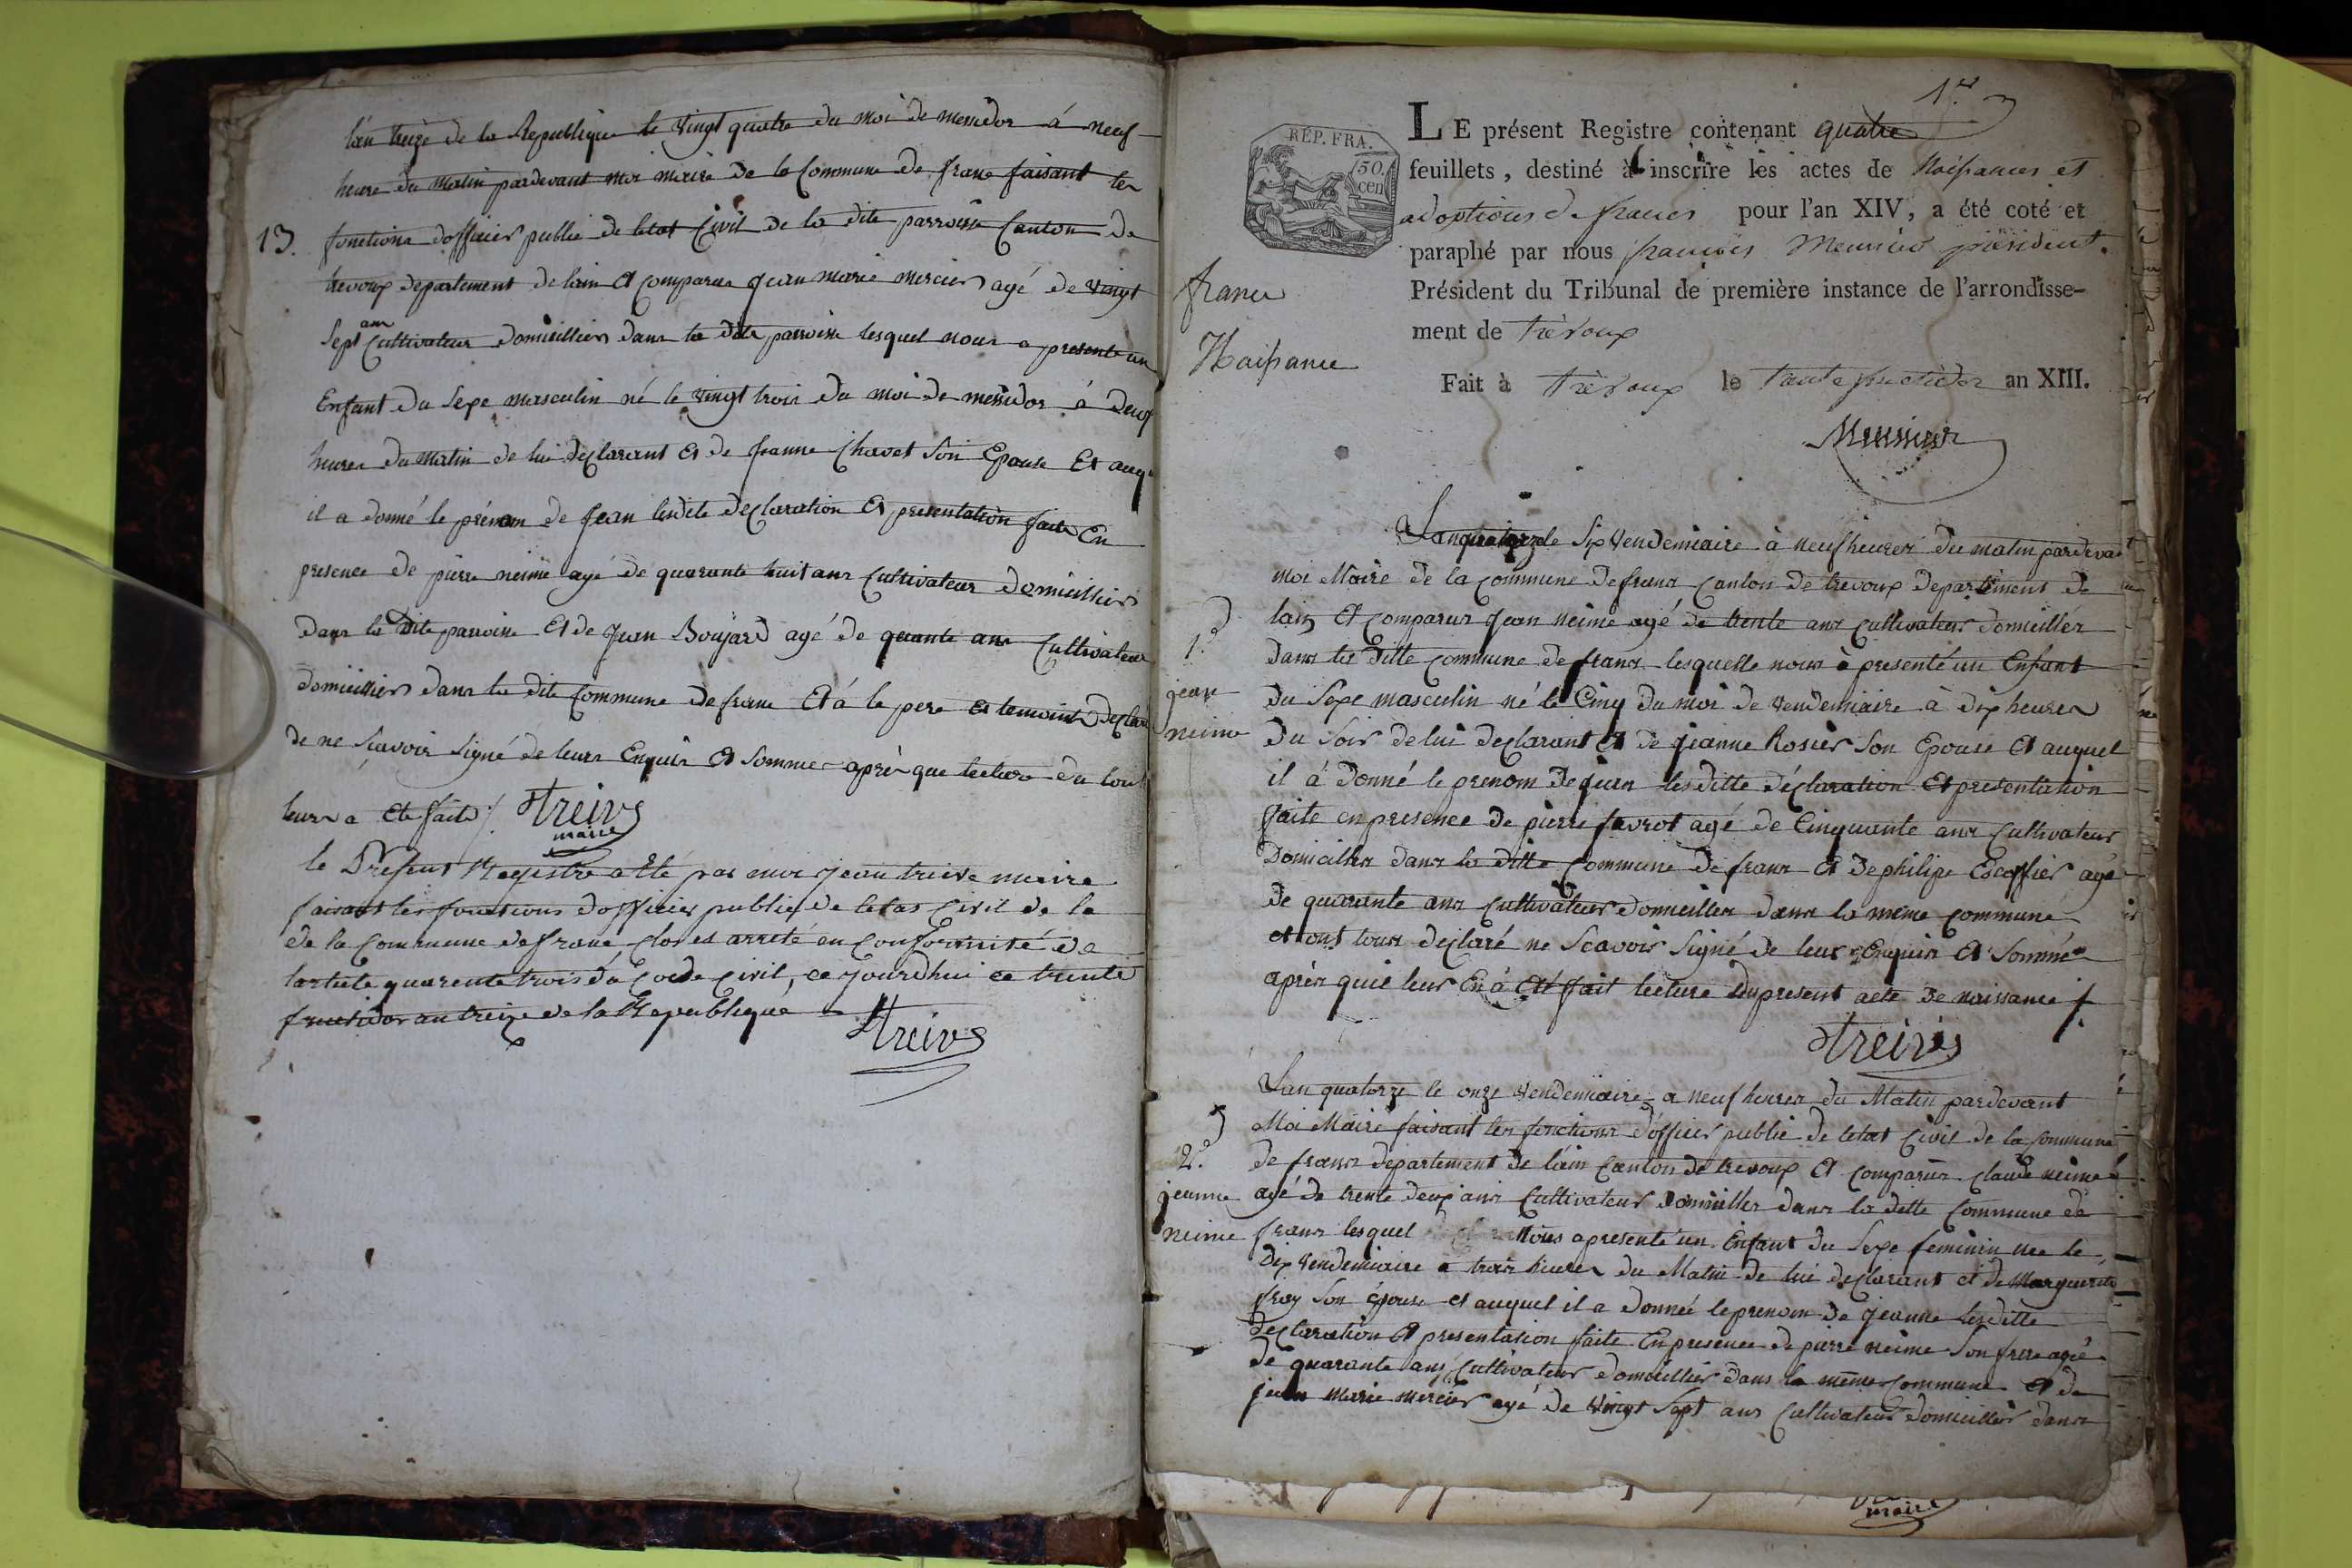 l'an treize de la Republique le vingt quatre du moi de messidor à neuf
heure du matin pardevant moi maire de la Commune de frane faisant les
13. fonctions d'officier public de letat Civil de la dite parroisse Canton de
trevoux departement de lain Et comparus jean marie mercier agé de vingt
Sept ans Cultivateur domicillier dans la dite paroisse lesquel nous a presenté un
Enfant du Sexe masculin né le vingt trois du moi de messidor à deux
heures du matin de lui declarant Et de jeanne Chavet Son Epouse Et auqu
il a donné le prénom de jean lesdite declaration Et presentation faite En
presence de pierre neime agé de quarante huit ans Cultivateur domicillier
dans la dite paroisse Et de jean Boujard agé de quante ans Cultivateur
domicillier dans la dite Commune de frane Et à le pere et temoint declar
de ne Scavoir Signé de leurs Enquis Et Sommer après que lecture du tout
leurs a Eté faite /. Treive
maire
le Present Registre a Eté par moi jean treive maire
faisant les fonctions d'officier public de letat Civil de la
de la Commune de frane Clos et arreté en Conformité de
lartcle quarente trois du Code Civil, ce jourdhui ce trente
fructidor an treize de la Republique
Treive
1er
LE présent Registre contenant quatre
feuillets, destiné à inscrire les actes de Naissances et
adoptions de frances pour l'an XIV, a été coté et
paraphé par nous francois Meunier président.
Président du Tribunal de première instance de l'arrondisse-
ment de trévoux
Fait à trévoux le trente fructidor an XIII.
Meunier
RÉP. FRA.
50.
cen
france
Naissance
Lan quatorze le Six vendemiaire à neuf heures du matin pardevant
moi Maire de la commune de frans Canton de trevoux departement de
lain Et comparus jean neime agé de trente ans cultivateur domicillér
1.
dans la ditte commune de frans lesquelle nous à presenté un Enfant
jean
neime
du Sexe masculin né le Cinq du moi de vendemiaire à dix heures
du Soir de lui declarant Et de jeanne Rosier Son Epouse Et auquel
il à donné le prenom de jean lesditte déclaration Et presentation
faite en presence de pierre favrot agé de Cinquante ans cultivateur
Domicillier dans la ditte commune de frans Et de philipe Escoffier agé
de quarante ans cultivateur domicillier dans la même commune
et ont tous declaré ne Scavoir Signé de leur Enquis Et Sommés
après quié leur En à Eté fait lecture du present acte de naissance /.
Treive
Lan quatorze le onze vendemiaire a neuf heures du Matin pardevant
Moi Maire faisant les fonctions d'officier public de letat Civil de la commune
2.
de frans departement de lain Canton de trevoux Et comparus claude neime
jeanne
neime
agé de trente deux ans Cultivateur domicillér dans la ditte Commune de
frans lesquel nous a presenté un Enfant du Sexe feminin née le
dix vendemiaire a trois heures du Matin de lui declarant et de Marguerite
fray Son épouse et auquel il a donnée le prenom de jeanne lesditte
declaration Et presentation faite En presence de pierre neime Son frere agé
de quarante ans Cultivateur domicillier dans la même commune Et de
jean Marie Mercier agé de vingt Sept ans Cultivateur domicillier dans
maire